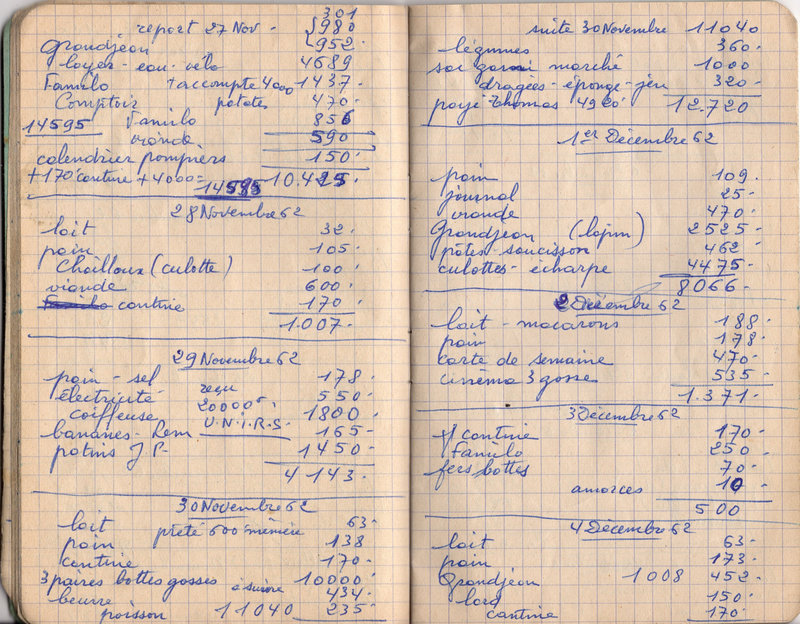 301
report 27 Nov - 980
Grandjéon 952.
loyer - eau - vélo 4689
Familo + accompte 4000 1437.
Comptoir patates 470.
14595 Familo 856
viande 590
calendrier pompiers 150.
+ 170 cantine + 4000 = 14595 10.425.
28 Novembre 62
lait 32.
pain 105.
Chailloux (culotte) 100
viande 600.
cantine 170.
1.007.
29 Novembre 62
pain - sel 178.
électricité reçu 550.
coiffeuse 20000 F. 1800
bananes - Rem U.N.I.R.S. 165.
patins J.P. 1450.
4 143.
30 Novembre 62
lait prêté 600 mémère 63.
pain 138
cantine 170.
3 paires bottes gosses 10000.
beurre à suivre 434.
poisson 11040 235.
suite 30 Novembre 11040
légumes 360.
marché 1000
dragées - éponge - jeu 320.
payé Thomas 4920 12.720
1er Décembre 62
pain 109.
journal 25.
viande 470.
Grandjéon (lapin) 2525.
pâtes - saucisson 462
culottes - écharpe 4475.
8066.
2 Décembre 62
lait - macarons 188.
pain 178.
carte de semaine 470.
cinéma 3 gosse 535.
1.371.
3 Décembre 62
cantine 170.
Familo 250
fers bottes 70.
amorces 10
500
4 Décembre 62
lait 63.
pain 173.
Grandjéon 1008 452
lard 150.
cantine 170.